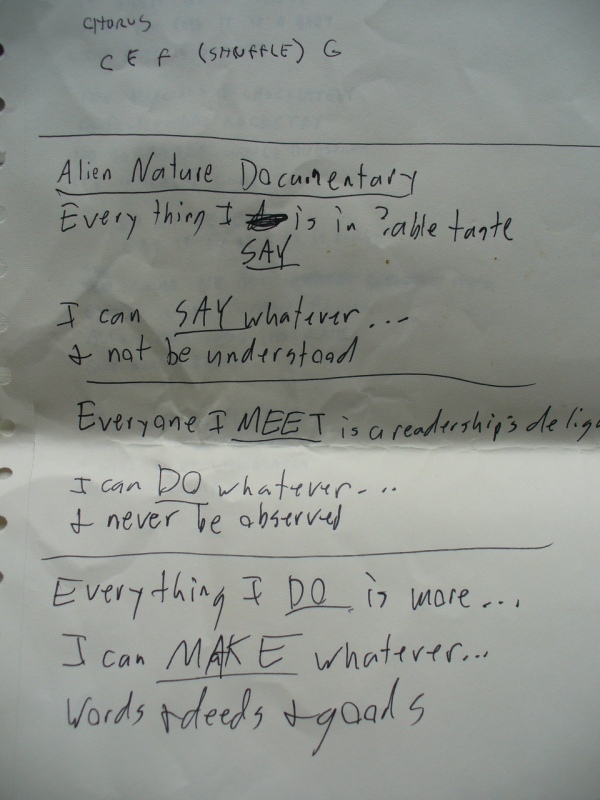 CHORUS
C E F (SHUFFLE) G
Alien Nature Documentary
Every thing I is in ?able taste
SAY
I can SAY whatever...
& not be understood
Everyone I MEET is a readership's delig
I can DO whatever...
& never be observed
Everything I DO is more...
I can MAKE whatever...
Words & deeds & goods